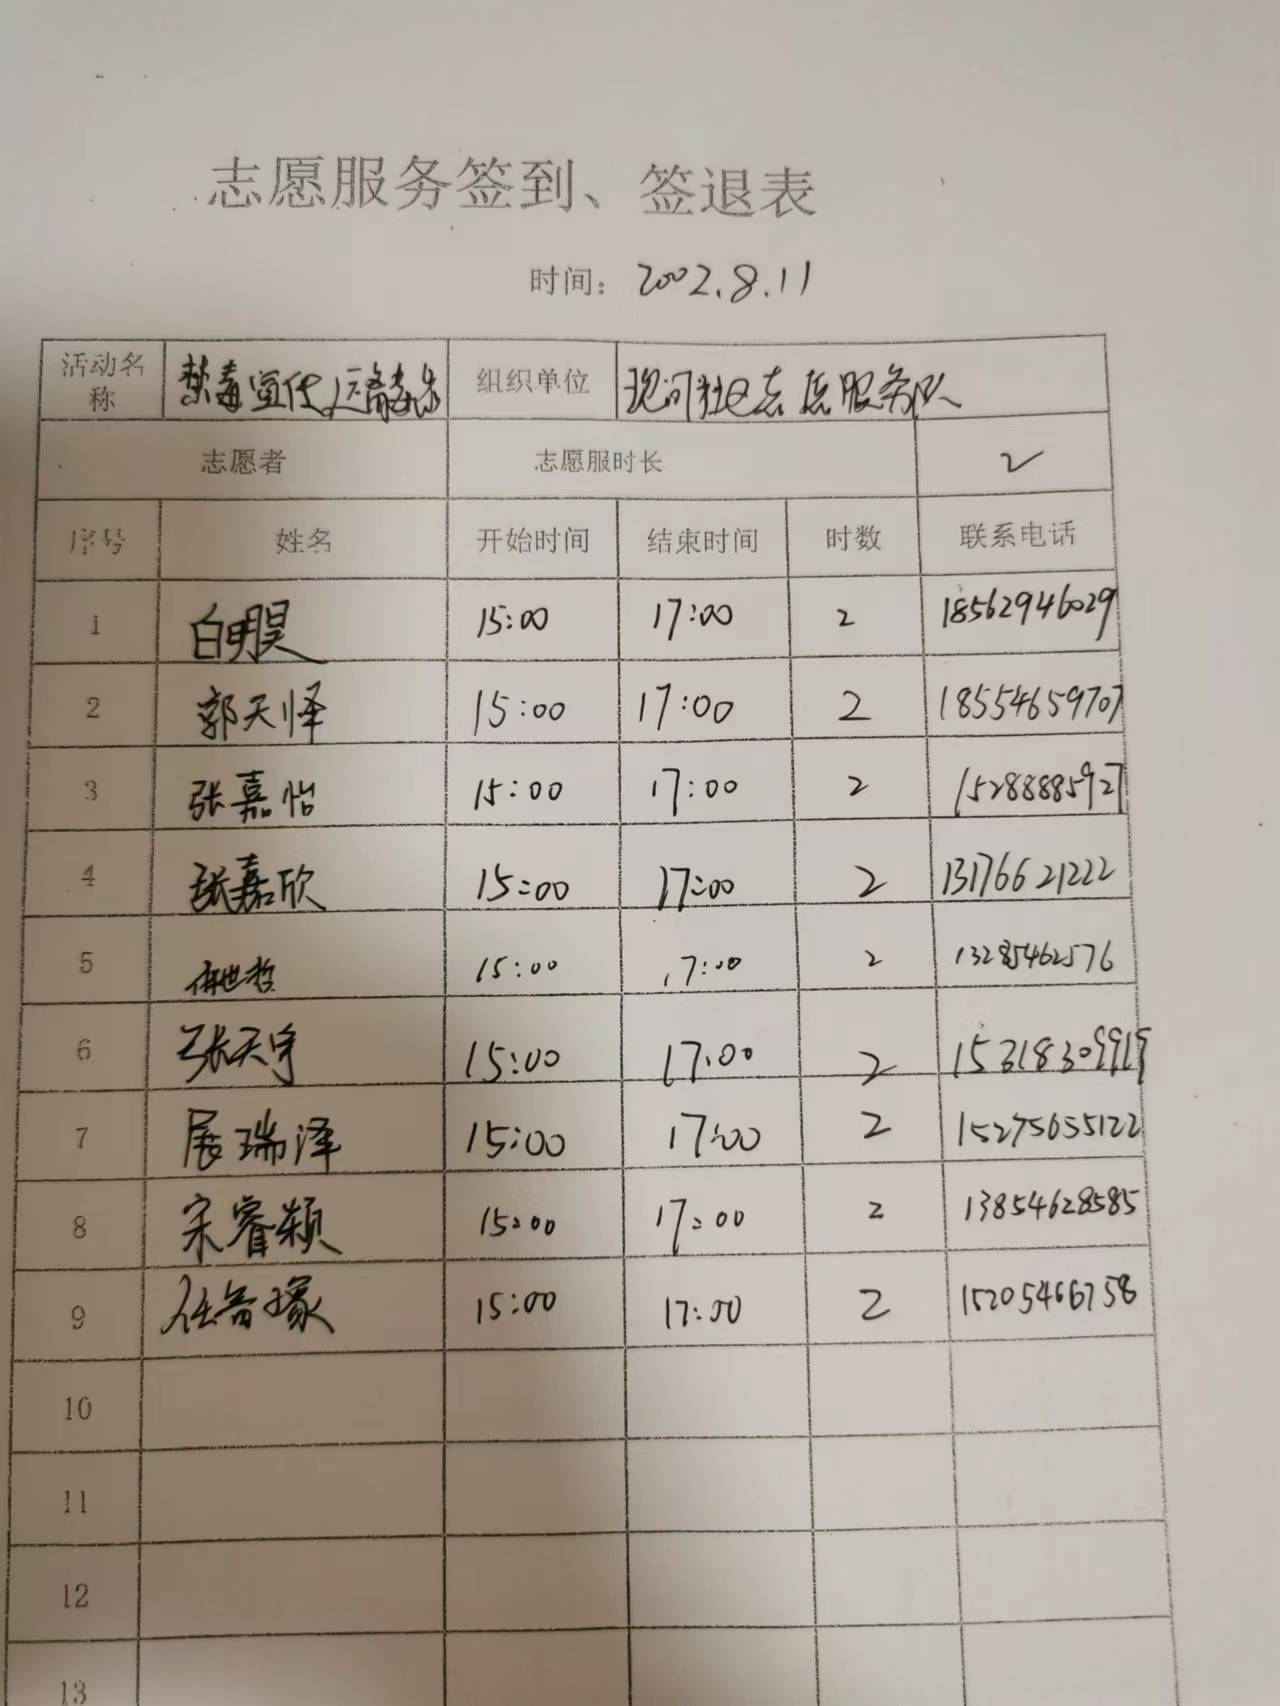 志愿服务签到、签退表
时间: 2002.8.11
活动名称 禁毒宣传 组织单位 社区志愿服务队
志愿者 志愿服时长 2
序号 姓名 开始时间 结束时间 时数 联系电话
1 白明昊 15:00 17:00 2 18562946029
2 郭天怿 15:00 17:00 2 18554659707
3 张嘉怡 15:00 17:00 2 15288885927
4 张嘉欣 15:00 17:00 2 13176621222
5 15:00 17:00 2 13285462576
6 张天宇 15:00 17:00 2 15318309919
7 展瑞泽 15:00 17:00 2 15275635122
8 宋睿颖 15:00 17:00 2 13854628585
9 15:00 17:00 2 15205466758
10
11
12
13